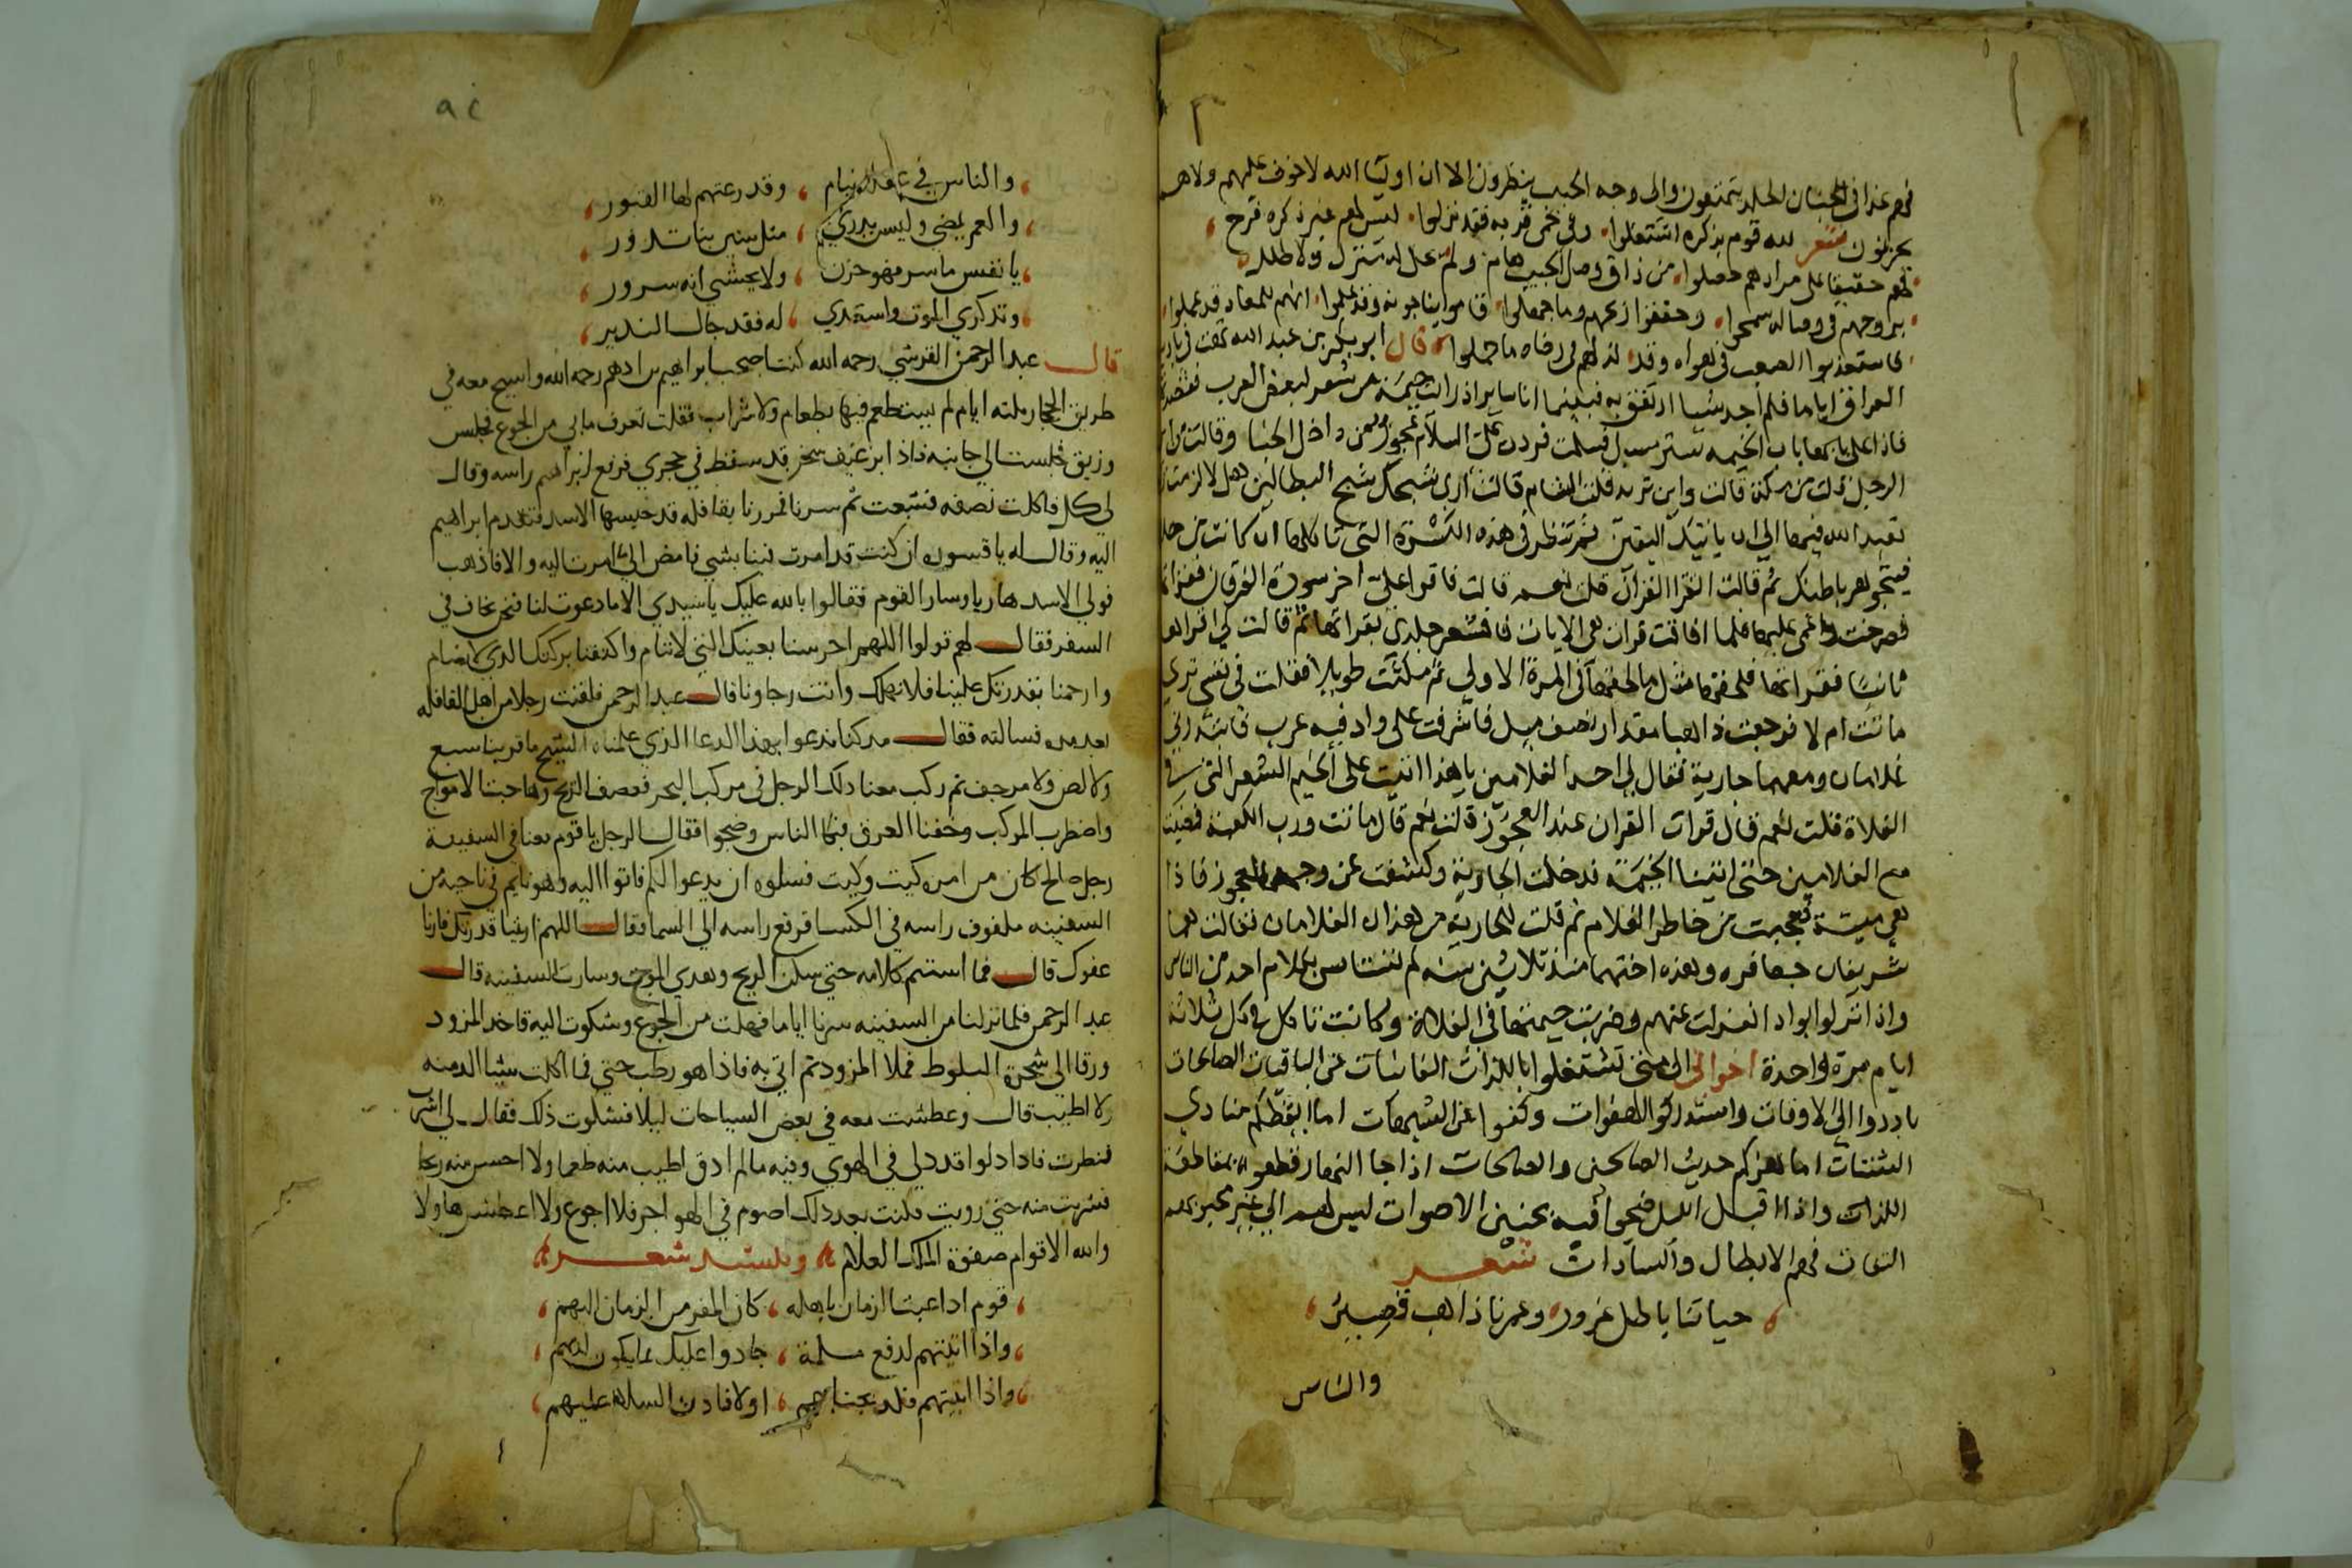 فهم غدا في الجنان الخلد يتمتعون والى وجه الحبيب ينظرون الا ان اوليا الله لا خوف عليهم ولا هم
يحزنون شعر لله قوم بذكره اشتغلوا وفي حمى قربه فقد نزلوا ليس لهم غير ذكره فرح
لهم حقيقا على مرادهم حصلوا من ذاق وصل الحبيب هام ولم
بروحهم في وصاله سمحوا وحققوا زعمهم وما جهلوا قاموا يناجونه وقد علموا انهم للمعاد قد عملوا
فاستعذبوا الصعب في هواه وقد لذ لهم في رضاه ما حملوا قال ابو بكر بن عبد الله تهت في بادية
العراق اياما فلم اجد شيا ارتفق به فبينما انا ساير اذ رايت خيمة من شعر لبعض العرب فقصدتها
فاذا على باب الخيمه ستر مسبل فسلمت فردت علي السلام عجوز من داخل الخبا وقالت
الرجل قلت من مكة قالت واين تريد قلت الشام قالت ارى شبحك شبح البطالين هلا لزمت
تعبد الله فيها الى ان ياتيك اليقين ثم تنظر في هذه الكسرة التي تاكلها ان كانت من حل
ثم قالت اتقرا القران قلت نعم قالت فاقرا علي اخر سورة الفرقان فقراتها
فصرخت واغمي عليها فلما افاقت قرات هي الايات فاقشعر جلدي بقراتها ثم قالت لي اقراها
ثانيا فقراتها فلحقها مثل ما لحقها في المرة الاولي ثم مكثت طويلا فقلت في نفسي ترى
ماتت ام لا فرجعت ذاهبا مقدار نصف ميل فاشرفت على واد فيه عرب
غلامان ومعهما جارية فقال لي احد الغلامين يا هذا اتيت على الخيم الشعر التي في
الفلاة قلت نعم قال قرات القران عند العجوز قلت نعم قال ماتت ورب الكعبة فمضيت
مع الغلامين حتى اتينا الخيمة فدخلت الجارية وكشفت عن وجه العجوز فاذا
هي ميتة فعجبت من خاطر الغلام ثم قلت للجارية من هذان الغلامان فقالت هما
شريفان جعافره وهذه اختهما منذ ثلاثين سنه لم تستانس بكلام احد من الناس
واذا نزلوا بواد انعزلت عنهم وضربت خيمتها في الفلاة وكانت تاكل في كل ثلاثة
ايام مرة واحدة اخواني الى متى تشتغلوا باللذات الفانيات عن الباقيات الصالحات
بادروا الى الاوقات واستدركوا الهفوات وكفوا عن الشبهات اما ايقظكم منادي
الشتات اما هزكم حديث الصالحين والصالحات اذا جا النهار قطعوه بمقاطعة
اللذات واذا اقبل الليل ضجوا فيه بحنين الاصوات ليس لهم الي غير محبوبهم
التفات فهم الابطال والسادات شعر
حياتنا باطل غرور وعمرنا ذاهب قصير
والناس
٩٤
والناس في غفلة نيام وقد دعتهم لها القبور
والعمر يمضي وليس يدري مثل سنين بنا تدور
يا نفس ما سر فهو حزن ولا يحسبي انه سرور
وتذكري الموت واستعدي له فقد جا النذير
قال عبد الرحمن القرشي رحمه الله كنت اصحب ابراهيم بن ادهم رحمه الله واسيح معه في
طريق الحجاز ثلثه ايام لم نستطعم فيها بطعام ولا شراب فقلت تعرف ما بي من الجوع فجلس
وزيق فجلست الي جانبه فاذا برغيف سخن قد سقط في حجري فرفع ابراهيم راسه وقال
لي كل فاكلت نصفه فشبعت ثم سرنا فمررنا بقافله قد حبسها الاسد فتقدم ابراهيم
اليه وقال له يا قسوره ان كنت قد امرت فينا بشي فامض الي ما امرت اليه والا فاذهب
فولي الاسد هاربا وسار القوم فقالوا بالله عليك يا سيدي الا ما دعوت لنا فنحن نخاف في
السفر فقال لهم قولوا اللهم احرسنا بعينك التي لا تنام واكنفنا بركنك الذي لا يضام
وارحمنا بقدرتك علينا فلا نهلك وانت رجاونا قال عبد الرحمن فلقيت رجلا من اهل القافله
بعد مده فسالته فقال مذ كنا ندعوا بهذا الدعا الذي علمناه الشيخ ما قربنا سبع
ولا لص ولا مرجف ثم ركب معنا ذلك الرجل في مركب البحر فعصف الريح وهاجت الامواج
واضطرب المركب وخفنا الغرق فبكا الناس وضجوا فقال الرجل يا قوم معنا في السفينة
رجل صالح كان من امره كيت وكيت فسلوه ان يدعوا لكم فاتوا اليه وهو نايم في ناحية من
السفينه ملفوف راسه في الكسا فرفع راسه الي السما فقال اللهم اريتنا قدرتك فارنا
عفوك قال فما استتم كلامه حتي سكن الريح وهدي الموج وسارت السفينه قال
عبد الرحمن فلما نزلنا من السفينه سرنا اياما فهلت من الجوع وشكوت اليه فاخذ المزود
ورقا الى شجرة البلوط فملا المزود ثم اتي به فاذا هو رطب جني فما اكلت شيئا الذ منه
ولا اطيب قال وعطشت معه في بعض السياحات ليلا فشكوت ذلك فقال لي اشرب
فنظرت فاذا دلوا قد دلي في الهوي وفيه ما لم اذق اطيب منه طعما ولا احسن منه ريحا
فشربت منه حتي رويت فكنت بعد ذلك اصوم في الهواجر فلا اجوع ولا اعطش هاولا
والله الاقوام صفوة الملك العلام وينشد شعر
قوم اذا عبث الزمان باهله كان المفر من الزمان اليهم
واذا اتيتهم لدفع ملمة جادوا عليك بما يكون لديهم
واذا اتيتهم فلذ بجنابهم اولا فادن السلام عليهم